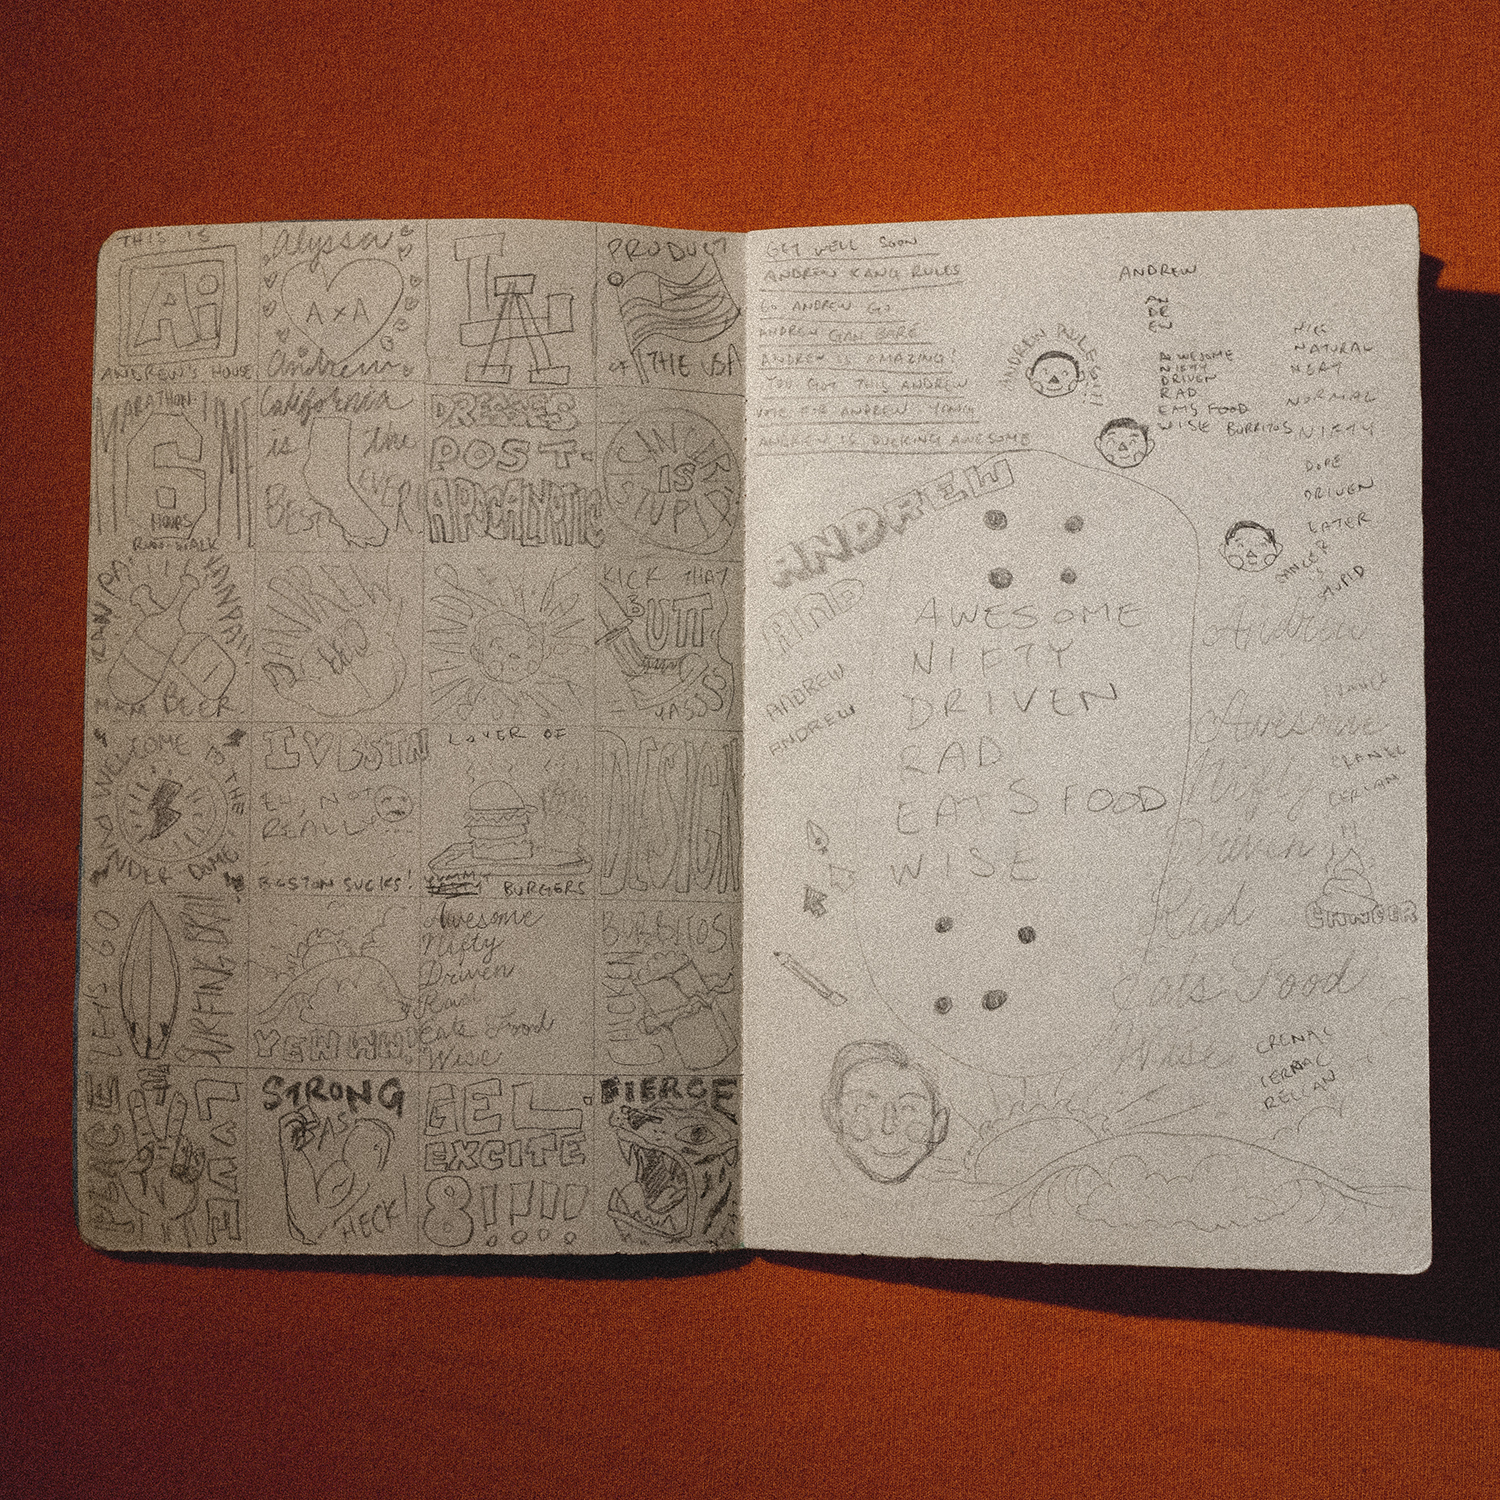 THIS IS
Ai
ANDREW'S HOUSE
Alyssa
A x A
Andrew
LA
PRODUCT
OF THE USA
MARATHON
TIME
6
HOURS
RUN-WALK
California
is the
BEST EVER
DRESSES
POST-
APOCALYPTIC
CANCER
IS
STUPID
KANPAI!
MMM BEER
ANDREW
KICK THAT
BUTT
YASSS
WELCOME
TO THE
UNDER DOME
EH, NOT
REALLY...
BOSTON SUCKS!
LOVER OF
YUMMY
BURGERS
DESIGN
LET'S GO
SURFING
YEW
Awesome
Nifty
Driven
Rad
Eats Food
Wise
BURRITOS
CHICKEN
PEACE
STRONG
AS
HECK!
GEL-
EXCITE
8!!!!!
FIERCE
GET WELL SOON
ANDREW KANG RULES
GO ANDREW GO
ANDREW IS AMAZING!
YOU GOT THIS ANDREW
VOTE FOR ANDREW
ANDREW IS DUCKING AWESOME
ANDREW RULES!!!
ANDREW
AN
DR
EW
AWESOME
NIFTY
DRIVEN
RAD
EATS FOOD
WISE BURRITOS
NATURAL
NERT
NORMAL
NIFTY
DOPE
DRIVEN
LATER
ANDREW
AND
ANDREW
ANDREW
AWESOME
NIFTY
DRIVEN
RAD
EATS FOOD
WISE
Andrew
Awesome
Nifty
Driven
Rad
Eats Food
Wise